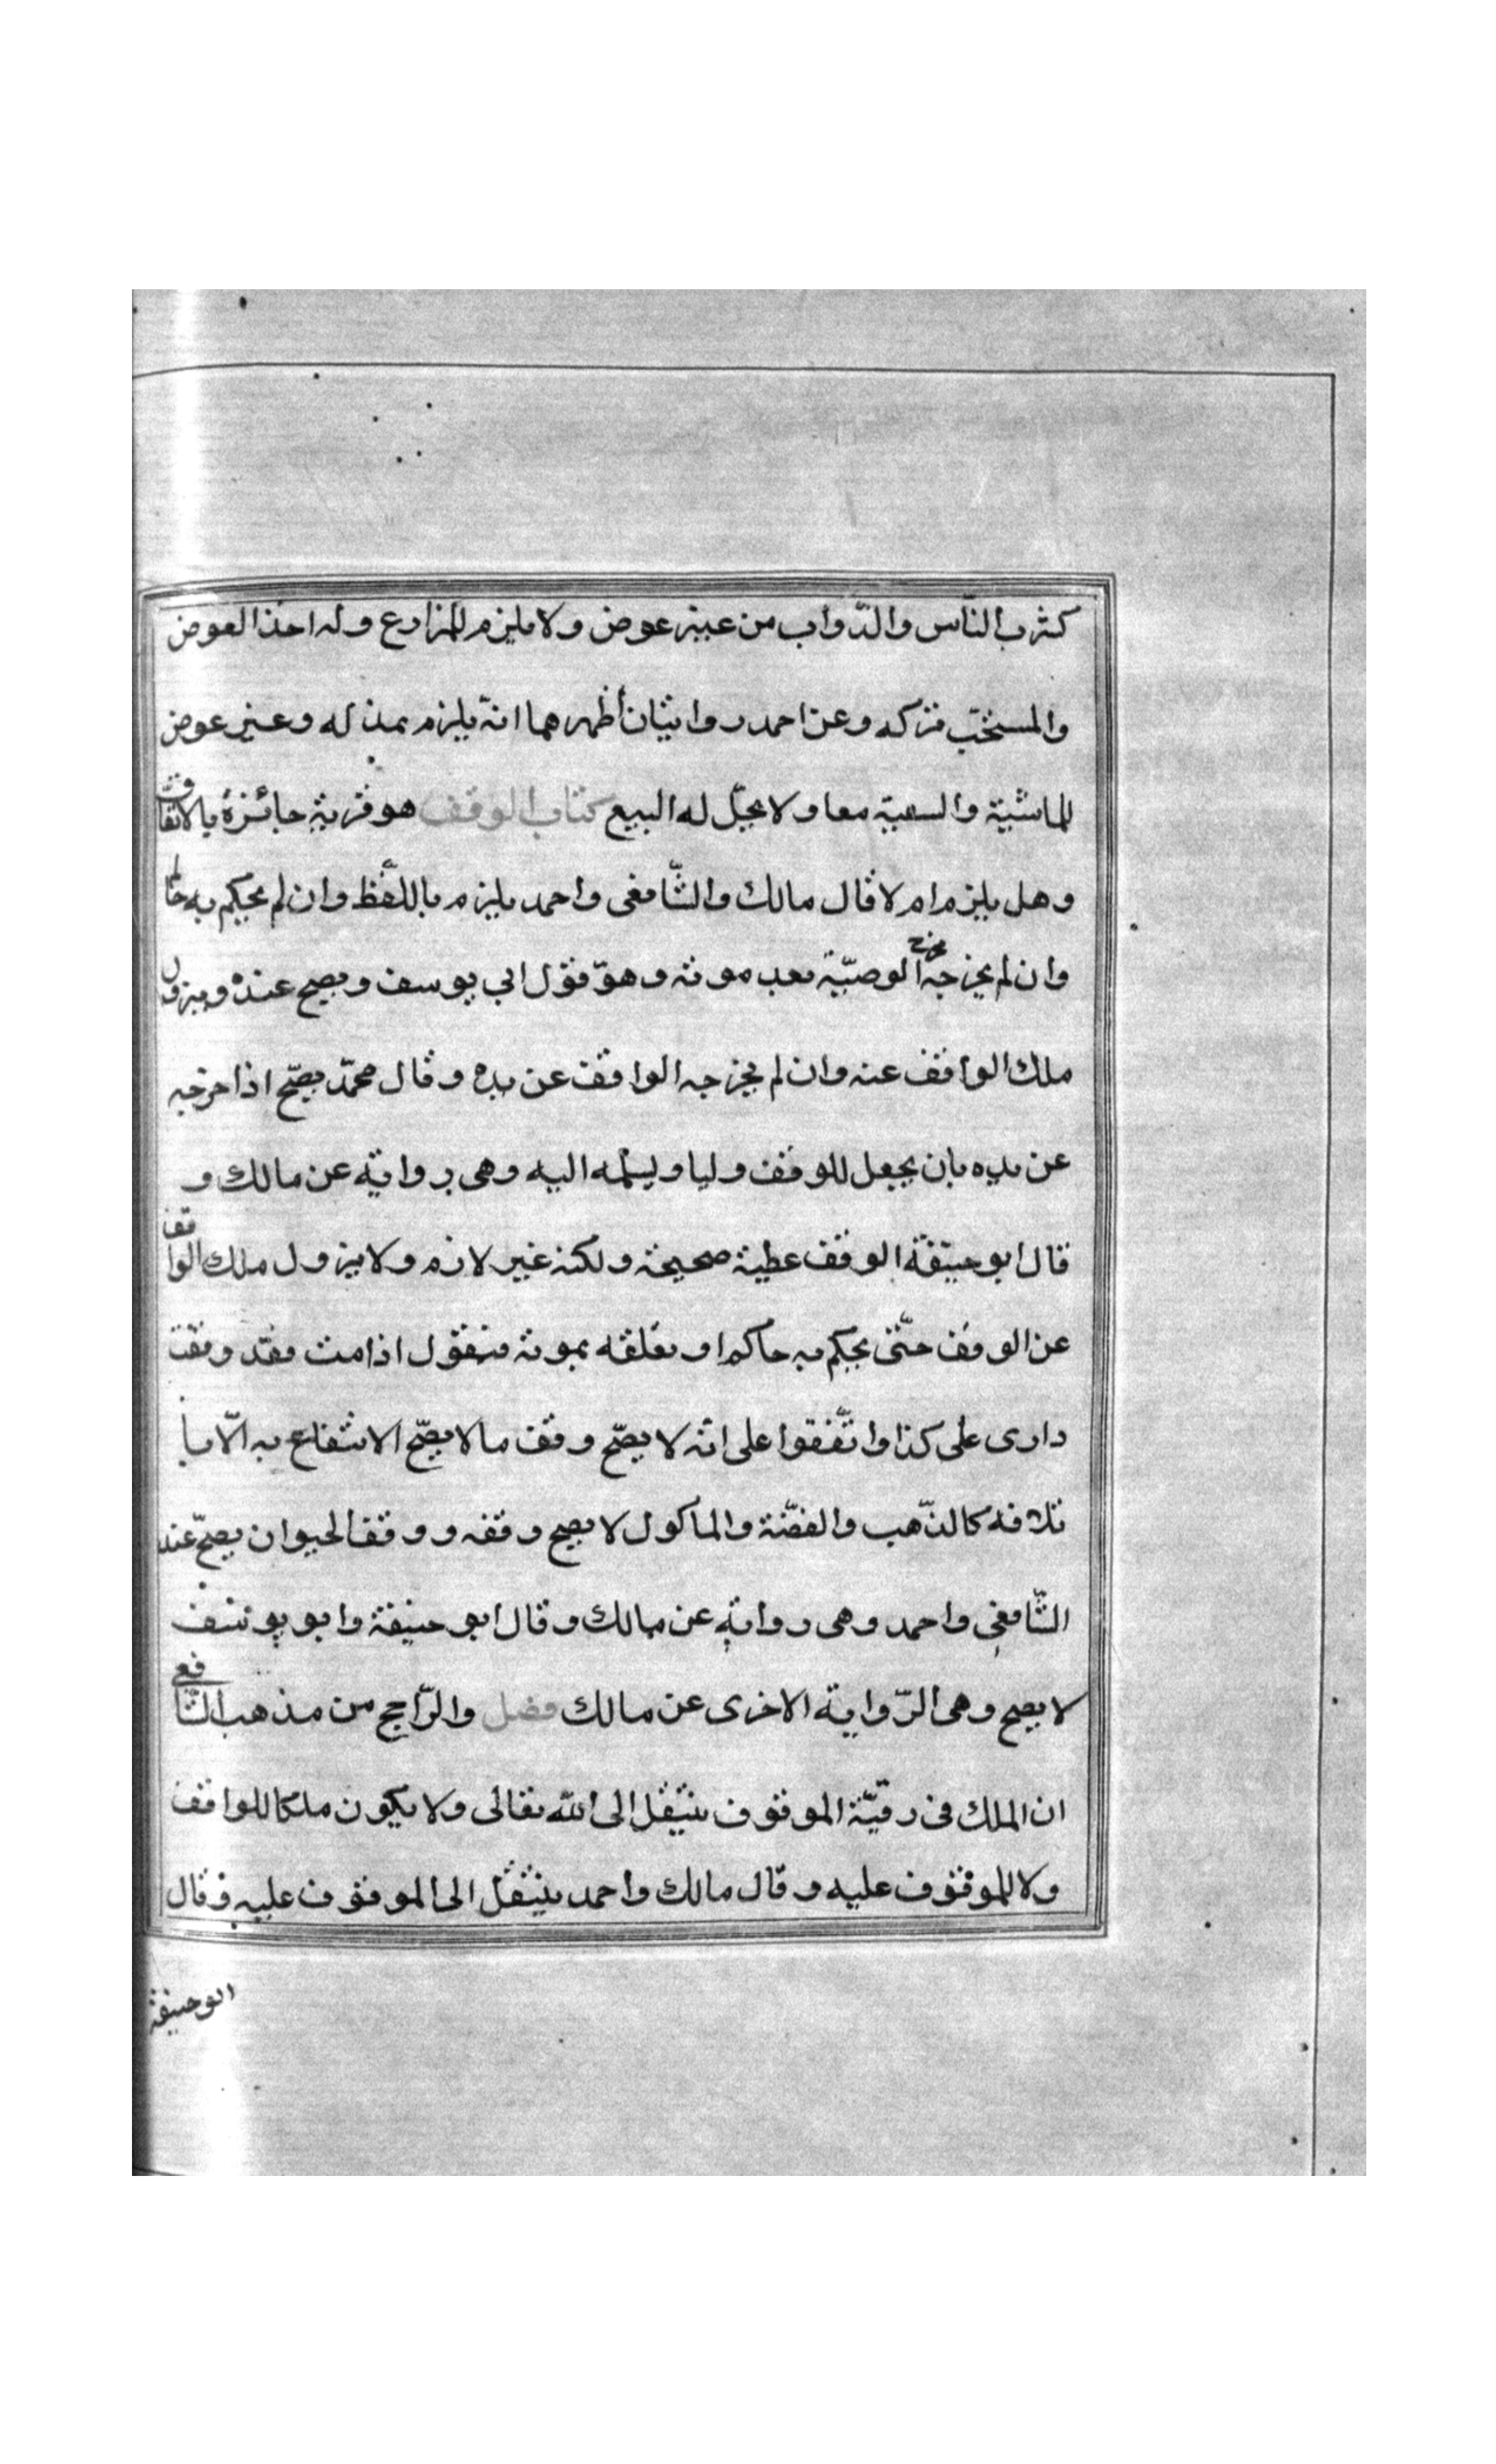 كشرب النّاس والدّواب من غير عوض ولا يلزم للمزارع وله اخذ العوض
والمستحّب تركه وعن احمد روايتان أظهرهما انه يلزم بذله وعنير عوض
للماشية والسعية معا ولا يحلّ له البيع كتاب الوقف هو قربة جائزة بالاتفاق
وهل يلزم ام لا قال مالك والشّافعى واحمد يلزم باللّفظ وان لم يحكم به حاكم
وان لم يخرجه مخرج الوصيّة بعد موته وهو قول ابي يوسف ويصح عنده ويزول
ملك الواقف عنه وان لم يخرجه الواقف عن يده وقال محمّد يصحّ اذا اخرجه
عن يده بان يجعل للوقف وليا ويسلمه اليه وهى رواية عن مالك و
قال ابو حنيفة الوقف عطية صحيحة ولكنه غير لازم ولا يزول ملك الواقف
عن الوقف حتّى يحكم به حاكم او يعلقه بموته فيقول اذا مت فقد وقفت
دارى على كذا واتّفقوا على انّه لا يصحّ وقف ما لا يصحّ الانتفاع به الّا با
تلافه كالذّهب والفضّة والماكول لا يصح وقفه ووقف الحيوان يصحّ عند
الشّافعى واحمد وهى رواية عن مالك وقال ابو حنيفة وابو يوسف
لا يصح وهى الرّواية الاخرى عن مالك فصل والرّاجح من مذهب الشّافعى
ان الملك فى رقبّة الموقوف ينتقل الى الله تعالى ولا يكون ملكا للواقف
ولا للموقوف عليه وقال مالك واحمد ينتقل الى الموقوف عليه وقال
ابو حنيفة